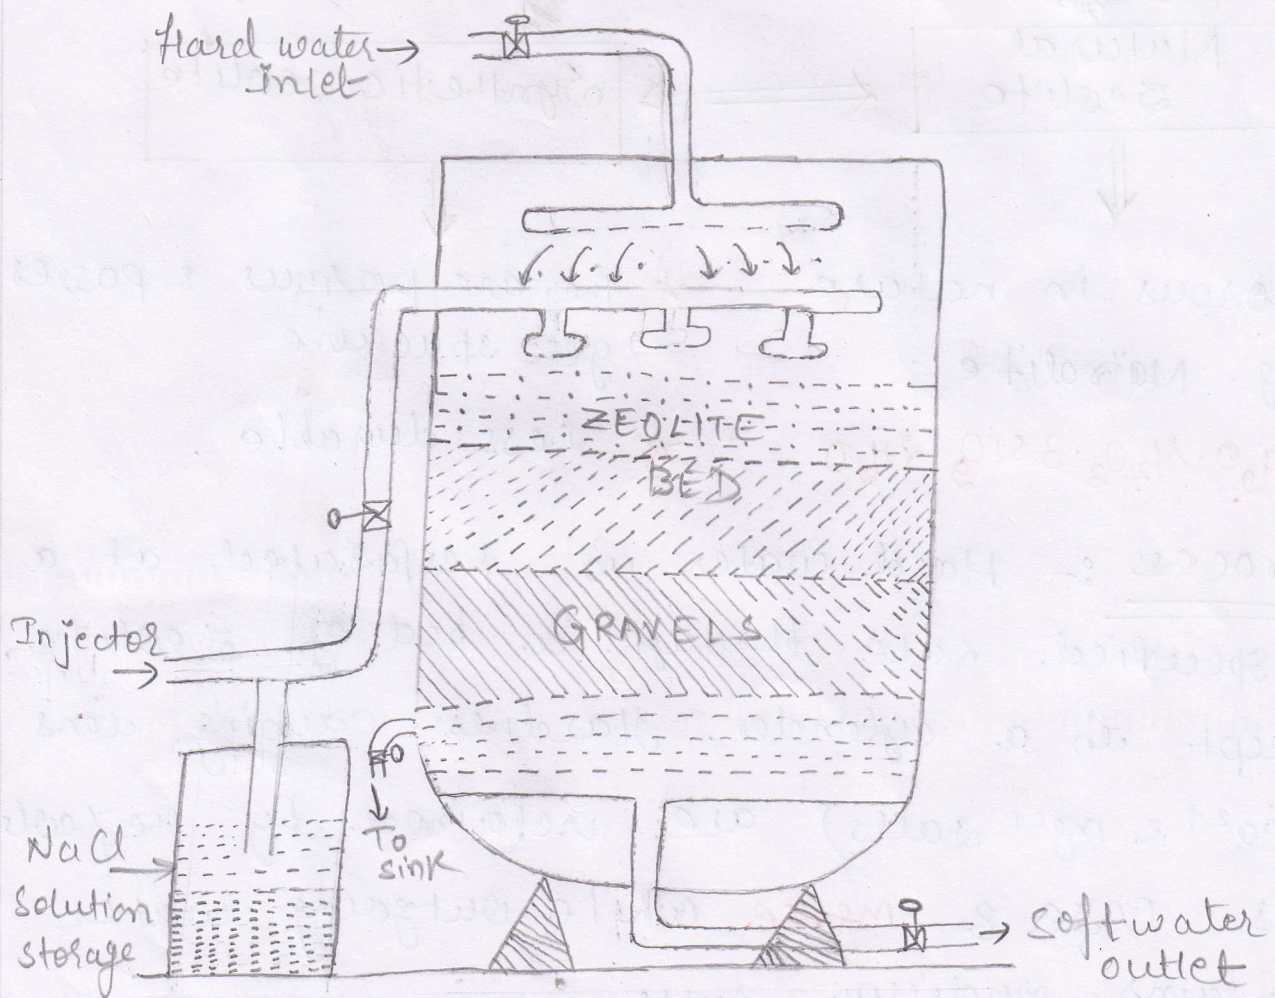 Hard water
inlet
ZEOLITE
BED
GRAVELS
Injector
To
sink
NaCl
solution
storage
Softwater
outlet